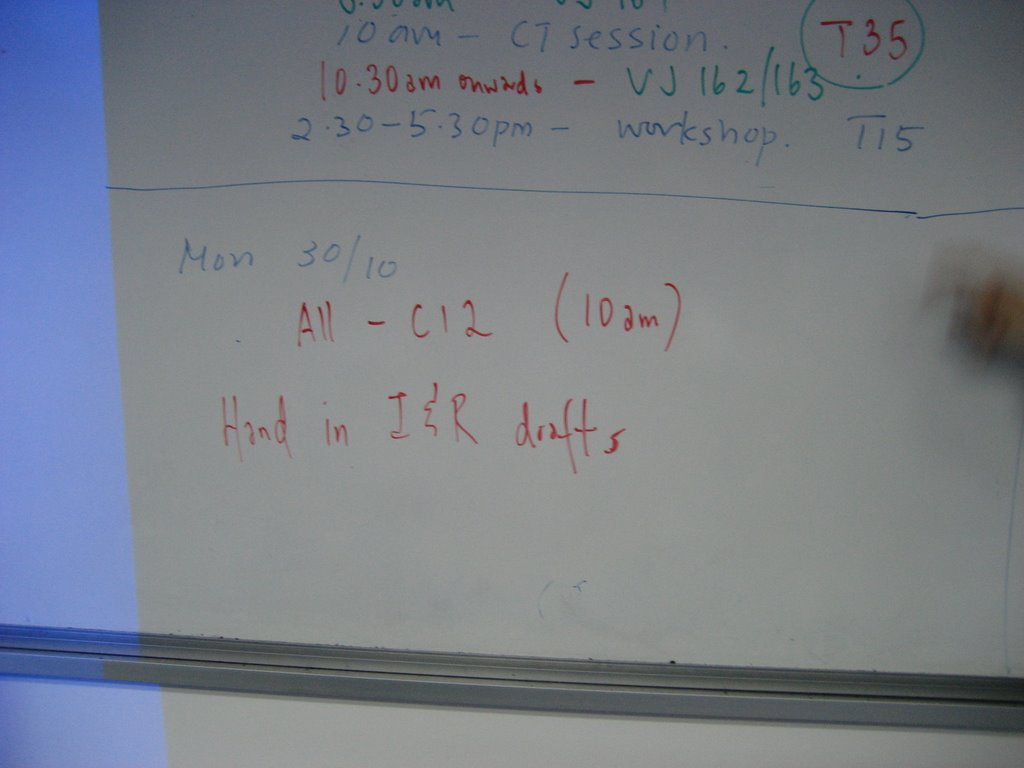 10 am - CT session. T35
10.30am onwards - VJ 162/163
2.30-5.30pm - workshop. T15
Mon 30/10
All - C12 (10am)
Hand in I&R drafts